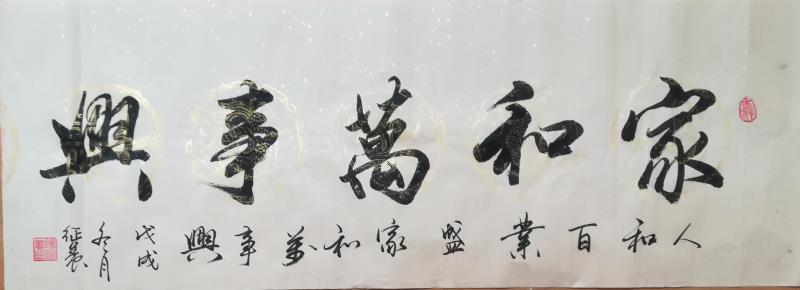 家和萬事興
人和百業盛家和万事興
戊戌
冬月